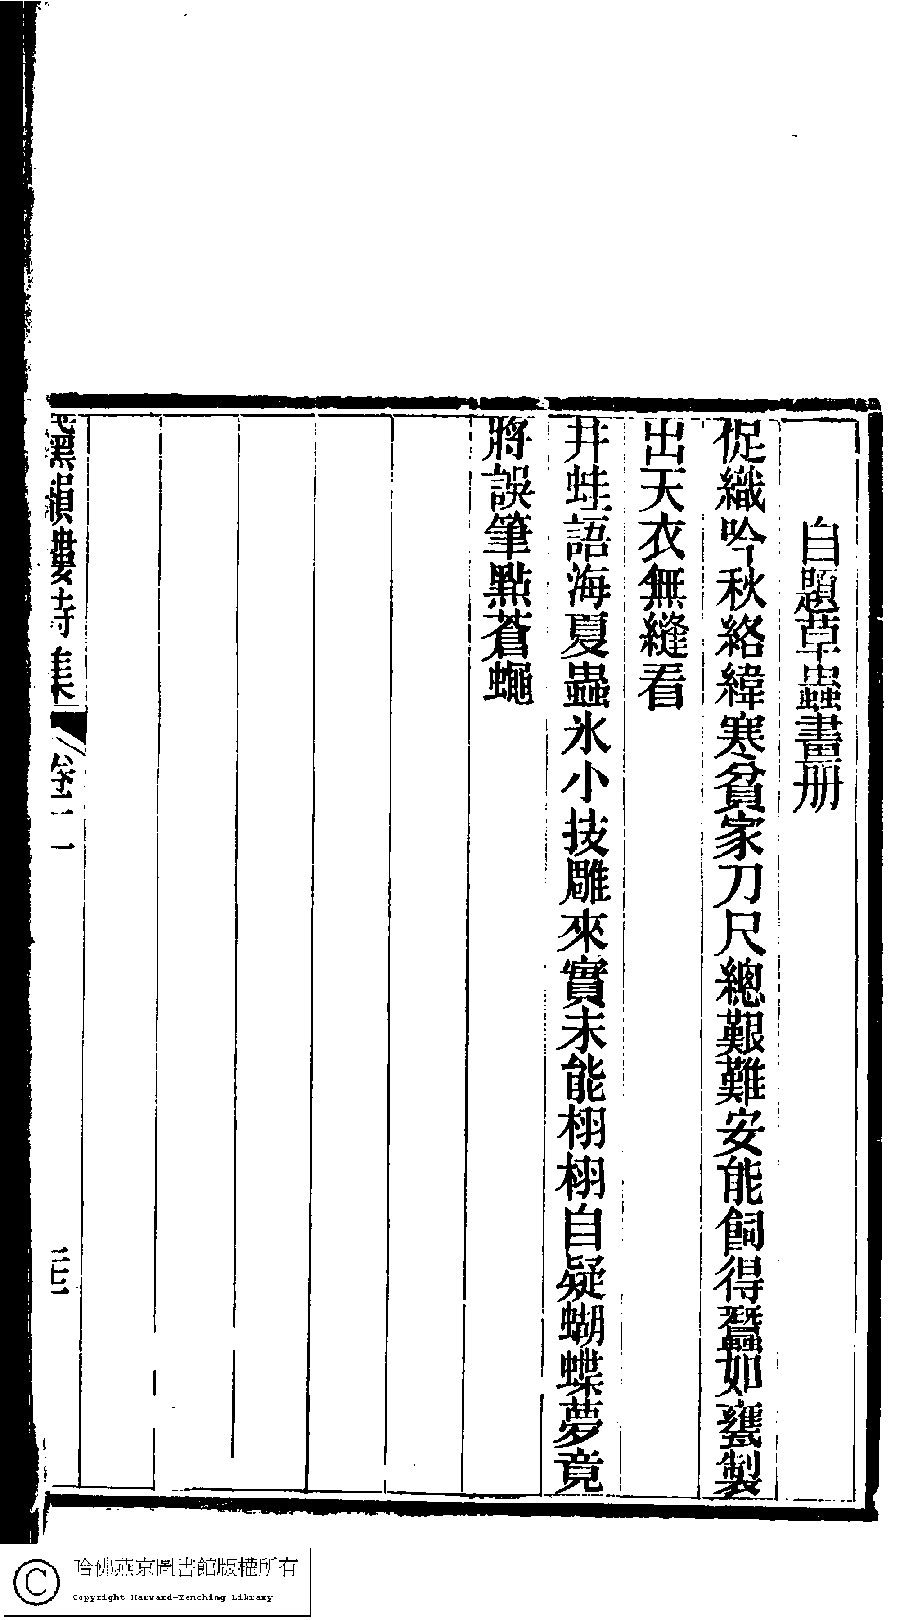 自題草蟲畫册
促織吟秋絡緯寒貧家刀尺總艱難安能飼得蠶如甕製
出天衣無縫看
井蛙語海夏蟲氷小技雕來實未能栩栩自疑蝴蝶夢竟
將誤筆點蒼蠅
韻樓詩集
卷二
哈佛燕京圖書館版權所有
Copyright Harvard-Yenching Library